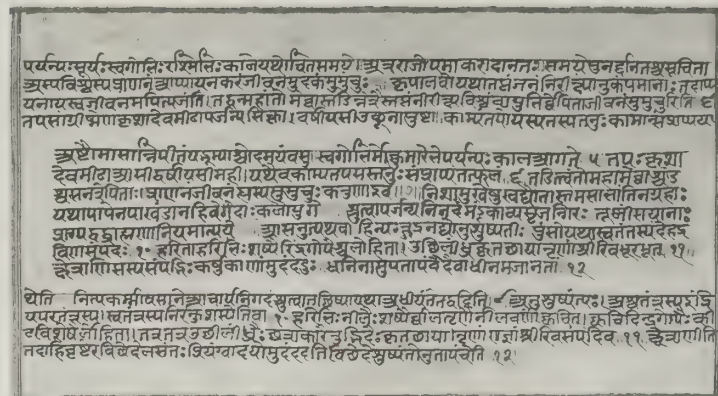 पर्यन्यःसूर्यःस्वगोभिःरश्मिभिःकालेयथोचितसमये।अत्रराजोपमाकरादानतःसमयेपुनर्द्दानतश्चसूचिता
अस्यविश्वस्यप्राणनंआप्यायनकरंजीवनमुदकंमुमुचुः कृपालवोयथातप्तंजनंनिरीक्ष्यानुकंपमानाःतदाप्य
यनायस्वजीवनमपित्यजंति।तद्वन्महांतोमेघास्तडिन्नेत्रैस्तप्तंनिरीक्ष्यविश्वंवायुभिर्वेपिताजीवनंमुमुचुरिति ६
तपसाग्रीष्मेणकृशादेवमीढापर्जन्यसिक्ता।वर्षीयसीउच्छूनापुष्टा काम्यतपायस्यतस्यतनुःकामान्संप्राप्यय
अष्टौमासान्निपीतंयद्भूम्याश्चोदमयंवसु स्वगोभिर्मोक्तुमारेभेपर्यन्यःकालआगते ५ तपःकृशा
देवमीढाआसीद्वर्षीयसीमही।यथैवकाम्यतपसस्तनुःसंप्राप्यतत्फलं ६ तडित्वंतोमहामेघाश्चंड
श्वसनवेपिताः।प्रीणनंजीवनंह्यस्यमुमुचुःकरुणाइव ७ निशामुखेषुखद्योतास्तमसाभांतिनग्रहाः
यथापापेनपाखंडानहिवेदाःकलौयुगे श्रुत्वापर्जन्यनिनदंमंडूकाव्यसृजन्गिरः तूष्णींशयानाः
प्राग्यद्वद्ब्राह्मणानियमात्यये आसन्नुत्पथवाहिन्यःक्षुद्रनद्योनुशुष्यतीः पुंसोयथास्वतंत्रस्यदेहद्र
विणसंपदः १० हरिताहरिभिःशष्पैरिंद्रगोपैश्चलोहिता।उच्छिलींध्रकृतछायानृणांश्रीरिवभूरभूत् ११
क्षेत्राणिसस्यसंपद्भिःकर्षकाणांमुदंददुः धनिनामुपतापंवैदैवाधीनमजानतां १२
थेति नित्यकर्मावसानेआचार्यनिनदंश्रुत्वातच्छिष्यायथाअधीयंततद्वदिति।९ अनुशुष्यंत्यः।अस्वतंत्रस्यइंद्रि
यपरतंत्रस्य।स्वतंत्रस्यनिरंकुशस्येतिवा १० हरिभिःनीलैःशष्पैर्बालतृणैर्नीलवर्णाक्वचित्।क्वचिदिंद्रगोपैःकी
टविशेषैर्लोहिता।तत्रतत्रउच्छिलींध्रैःछत्राकारैरुद्भिदैःकृतछायानृणांराज्ञांश्रीरिवसंपदिव ११ क्षेत्राणीति
तदाहिवृष्टेरविच्छेदे प्रियंग्वादयोमुदंददतिविच्छेदेशुष्यंतोनुतापयंति १२